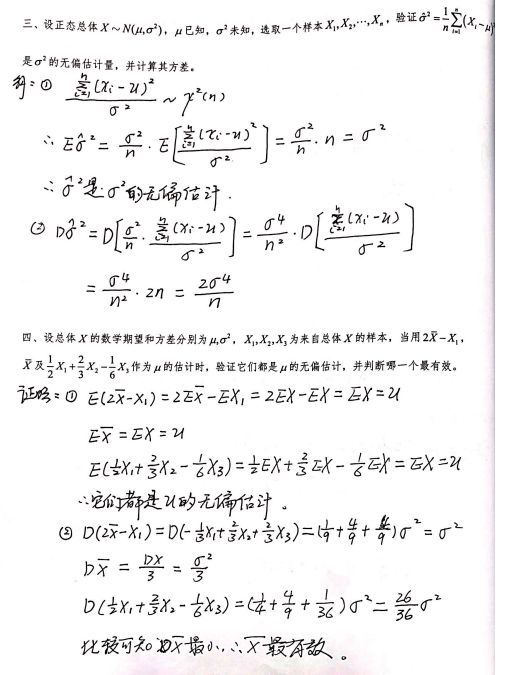 三、设正态总体 X～N(μ,σ²)，μ 已知，σ² 未知，选取一个样本 X₁,X₂,⋯,Xₙ，验证 σ̂²=1/n ∑ᵢ₌₁ⁿ(Xᵢ-μ)²
是 σ² 的无偏估计量，并计算其方差。
解：① ∑ᵢ₌₁ⁿ(Xᵢ-u)²/σ² ~ χ²(n)
∴ Eσ̂² = σ²/n · E[∑ᵢ₌₁ⁿ(Xᵢ-u)²/σ²] = σ²/n · n = σ²
∴ σ̂²是σ²的无偏估计.
② Dσ̂² = D[σ²/n · ∑ᵢ₌₁ⁿ(Xᵢ-u)/σ²] = σ⁴/n² · D[∑ᵢ₌₁ⁿ(Xᵢ-u)/σ²]
= σ⁴/n² · 2n = 2σ⁴/n
四、设总体 X 的数学期望和方差分别为 μ,σ²，X₁,X₂,X₃ 为来自总体 X 的样本，当用 2X̄-X₁，
X̄ 及 1/2 X₁+2/3 X₂-1/6 X₃ 作为 μ 的估计时，验证它们都是 μ 的无偏估计，并判断哪一个最有效。
证明：① E(2X̄-X₁)=2EX̄-EX₁=2EX-EX=EX=u
EX̄=EX=u
E(1/2X₁+2/3X₂-1/6X₃)=1/2EX+2/3EX-1/6EX=EX=u
∴它们都是u的无偏估计。
② D(2X̄-X₁)=D(-1/3X₁+2/3X₂+2/3X₃)=(1/9+4/9+4/9)σ²=σ²
DX̄ = DX/3 = σ²/3
D(1/2X₁+2/3X₂-1/6X₃)=(1/4+4/9+1/36)σ²=26/36σ²
比较可知 DX̄最小,∴X̄最有效。